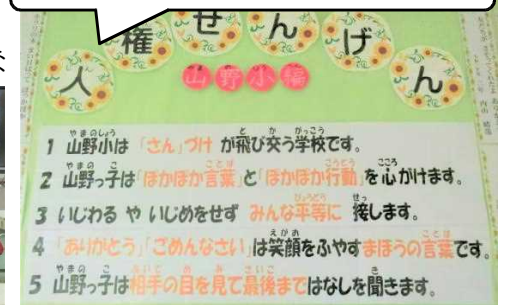 人権せんげん
山野小編
1 山野小は「さん」づけ が飛び交う学校です。
2 山野っ子は「ぽかぽか言葉」と「ぽかぽか行動」を心がけます。
3 いじわる や いじめをせず みんな平等に 接します。
4 「ありがとう」「ごめんなさい」は笑顔をふやすまほうの言葉です。
5 山野っ子は相手の目を見て最後まではなしを聞きます。